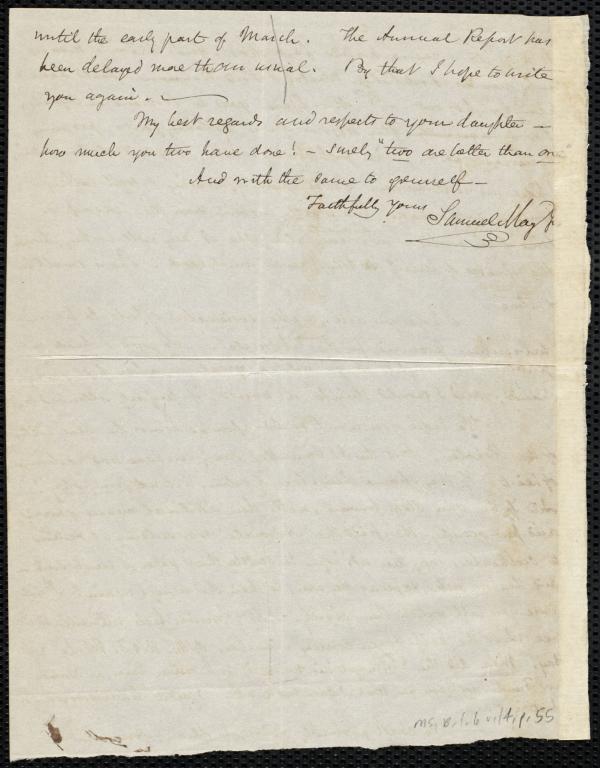 until the early part of March. The Annual Report has
been delayed more than usual. By that I hope to write
you again. —
My best regards and respects to your daughter —
how much you two have done! — surely "two are better than one
And with the same to yourself —
Faithfully Yours
Samuel May Jr
Ms. B.1.6 v.14, p. 55